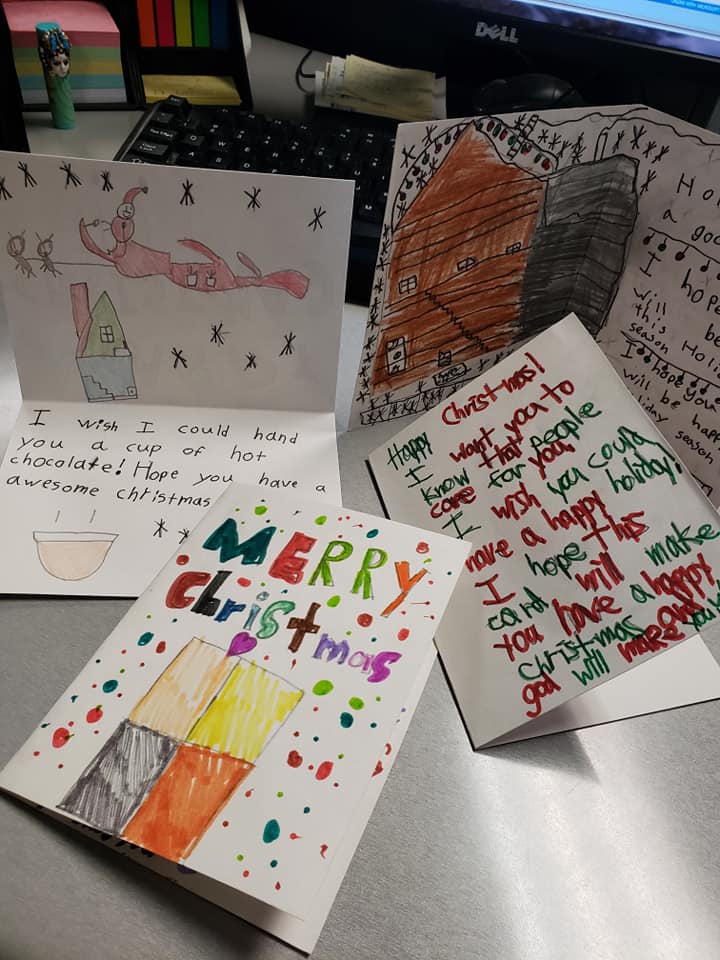 DELL
I wish I could hand
you a cup of hot
chocolate! Hope you have a
awesome christmas
MERRY
Christmas
a
I hope
will be
this
season
I hope
will be
season
Happy Christmas!
I want you to
know that people
care for you.
I wish you could
have a happy holiday!
I hope this
card will make
you have a happy
christmas and
god will make